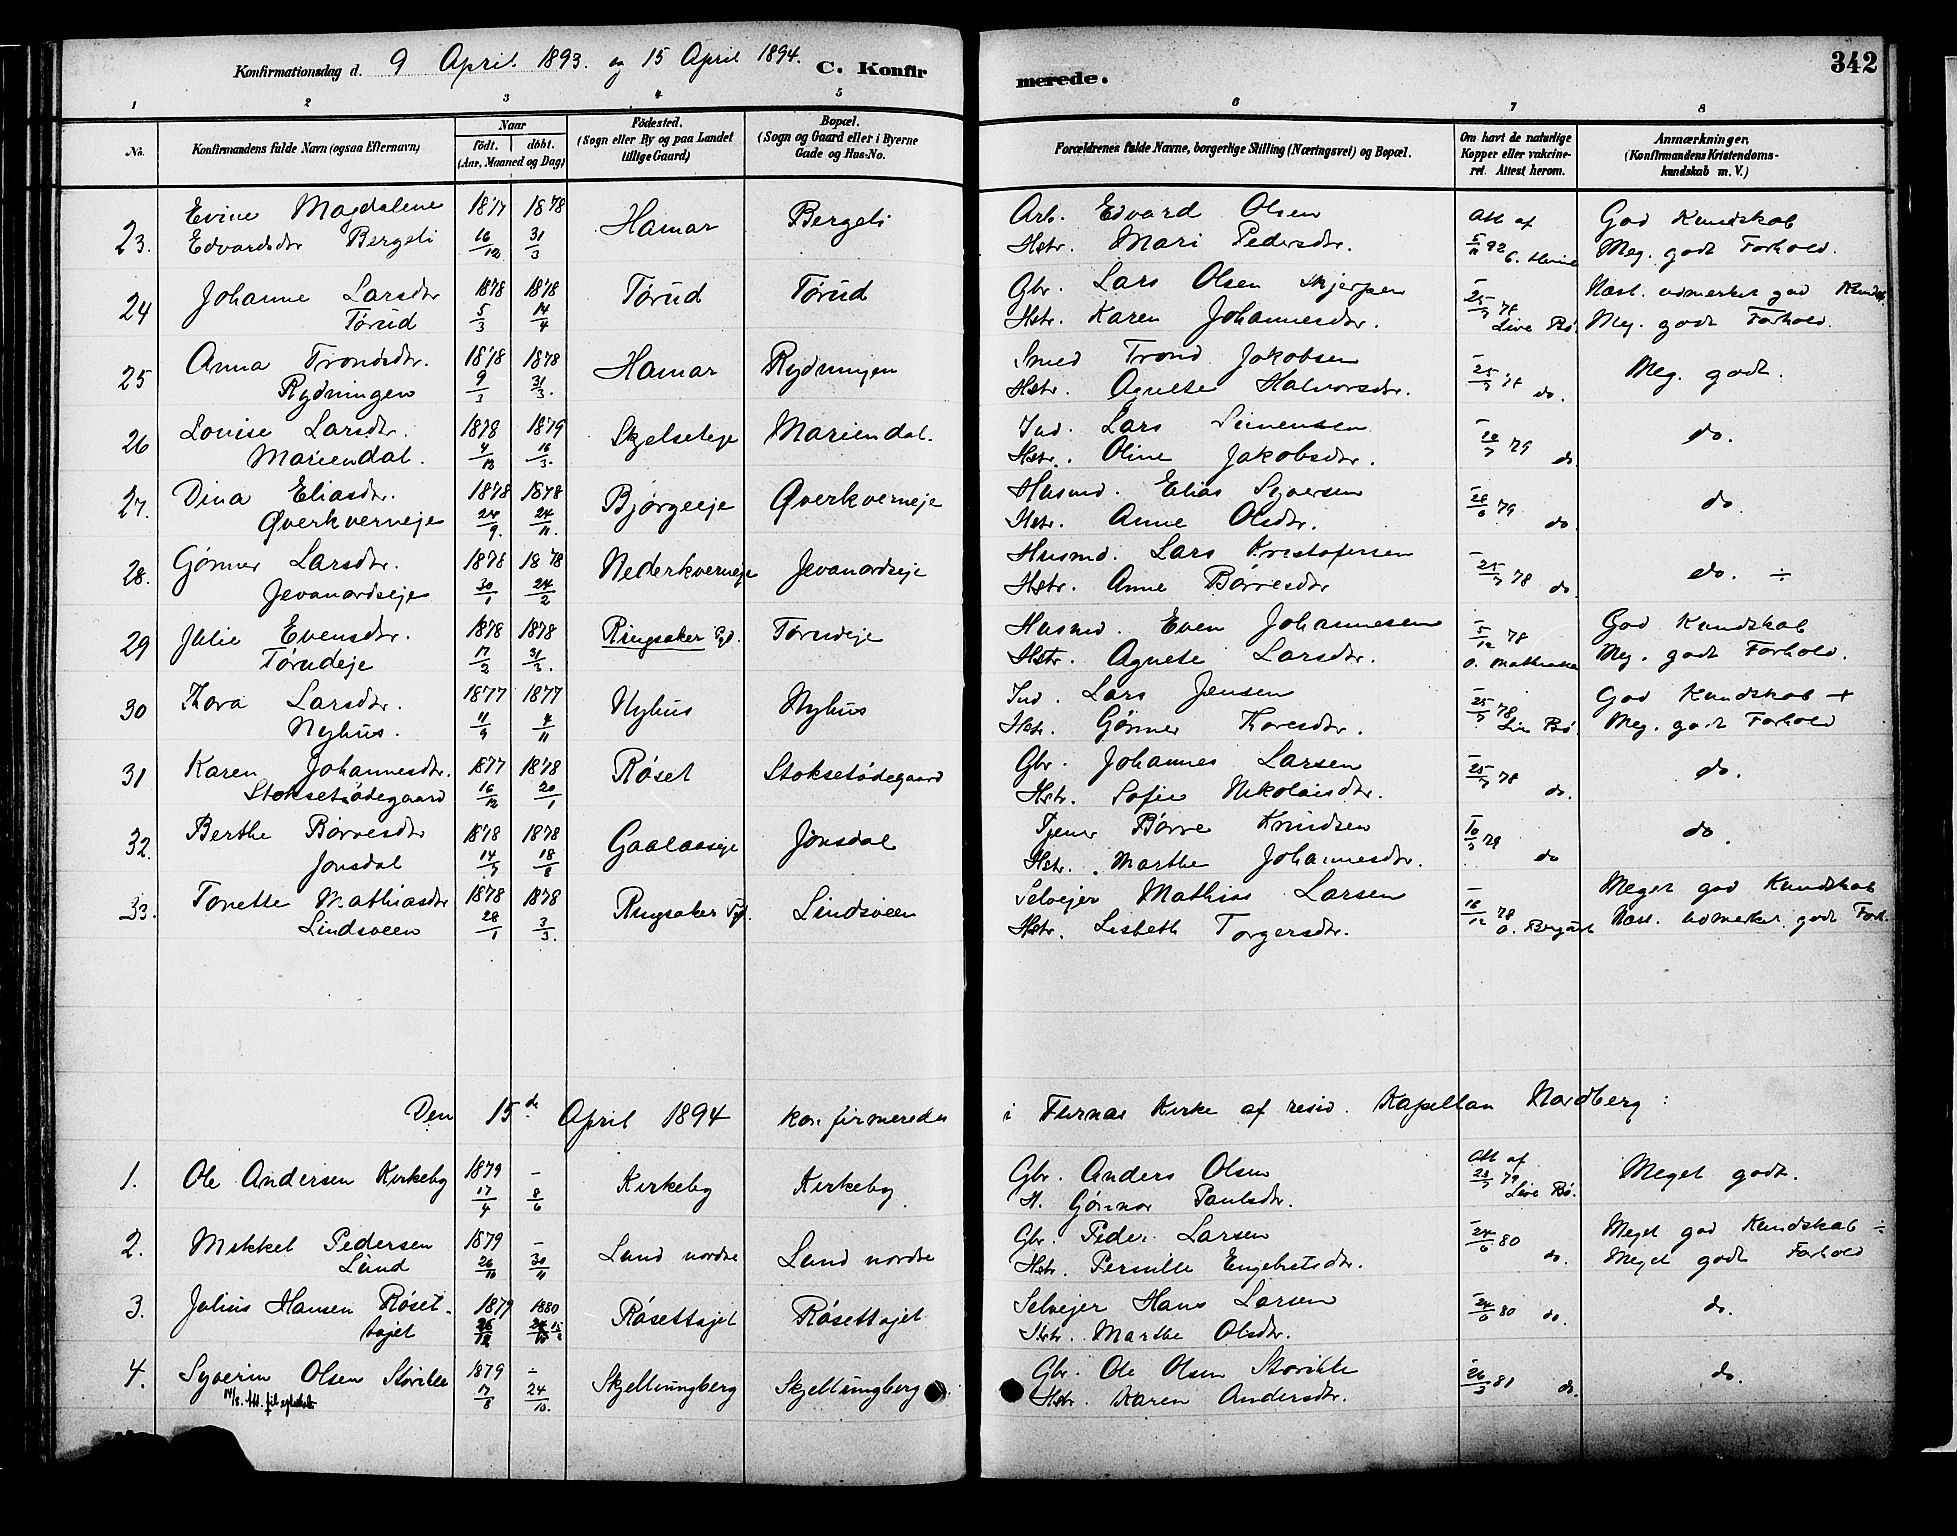 Konfirmationsdag d. 9 April 1893. og 15 April 1894. C. Konfirmerede. 342
1 2 3 4 5 6 7 8
No. Konfirmandens fulde Navn (ogsaa Efternavn) Naar födt. döbt. (Aar, Maaned og Dag) Födested. (Sogn eller By og paa Landet tillige Gaard) Bopæl. (Sogn og Gaard eller i Byerne Gade og Hus-No. Forældrenes fulde Navne, borgerlige Stilling (Næringsvei) og Bopæl. Om havt de naturlige Kopper eller vakcineret. Attest herom. Anmærkninger. (Konfirmandens Kristendomskundskab m. V.)
23. Evine Magdalene 1877 1878 Hamar Bergeli Arb. Edvard Olsen Att af God Kundskab
Edvardsdtr Bergeli 16/12 31/3 Hstr. Mari Pedersdtr. 92 Meg. godt Forhold.
24 Johanne Larsdtr 1878 1878 Tørud Tørud Gbr. Lars Olsen Skjerpen 25/7 78 Næst. udmerket god Kundsk
Tørud 5/3 14/4 Hstr. Karen Johannesdtr. Live Bø. Meg. godt Forhold.
25 Anna Trondsdtr. 1878 1878 Hamar Rydningen Smed Trond Jakobsen 25/7 78 do. Meg. godt.
Rydningen 9/3 31/3. Hstr. Agnete Halvorsdtr.
26 Lovise Larsdtr. 1878 1879 Skjelseteje Mariendal. Ind. Lars Simensen 79 do. do.
Mariendal. 4/12 16/3. Hstr. Oline Jakobsdtr.
27. Dina Eliasdtr. 1878 1878 Bjørgeeje Øverkverneje Husmd. Elias Syversen 79 do do.
Øverkverneje 24/9. 24/11. Hstr. Anne Olsdtr.
28. Gønner Larsdtr. 1878 1878 Nederkverneje Jevanordseje Husmd. Lars Kristofersen 25/7 78 do. do. ÷
Jevanordseje 30/1 24/2 Hstr. Anne Børresdtr
29 Julie Evensdtr. 1878 1878 Ringsaker Pgd. Tørudeje Husmd. Even Johannesen 5/12 78 God Kundskab
Tørudeje 17/2 31/3. Hstr. Agnete Larsdtr. Meg. godt Forhold.
30 Thora Larsdtr. 1877 1877 Nyhus Nyhus Ind. Lars Jensen 25/7 78 God Kundskab +
Nyhus. 11/9 4/11 Hstr. Gønner Thoresdtr. Live Bø. Meg. godt Forhold
31 Karen Johannesdtr. 1877 1878 Røset Stoksetødegaard Gbr. Johannes Larsen 25/7 78 do. do.
Stoksetødegaard 16/12 20/1 Hstr. Sofie Nikolaisdtr.
32. Berthe Børresdtr 1878 1878 Gaalaaseje Jønsdal Tjener Børre Knudsen 10/7 79 do do.
Jønsdal 14/7 18/8 Hstr. Marthe Johannesdtr.
33. Tonette Mathiasdtr 1878 1878 Ringsaker Pgd. Lindsveen Selvejer Mathias Larsen 16/12 78 Meget god Kundskab
Lindsveen 28/1 3/3. Hstr. Lisbeth Torgersdtr. Næst. udmerket godt Forh.
Den 15de April 1894 konfirmeredes i Furnæs Kirke af resid. Kapellan Nordberg:
1. Ole Andersen Kirkeby 1879 – Kirkeby Kirkeby Gbr. Anders Olsen Att af Meget godt.
17/4 8/6 H. Gønnor Paulsdtr. 79 Live Bø.
2. Mikkel Pedersen 1879 – Lund nordre Lund nordre Gbr. Peder Larsen 24/6 80 do. Meget god Kundskab ÷
Lund 26/10 30/11 Hstr. Pernille Engebretsdtr. Meget godt Forhold
3. Julius Hansen Røset- 1879 1880 Røsettajet Røsettajet Selvejer Hans Larsen 24/6 80 do. do.
tajet Hstr. Marthe Olsdtr.
4. Syverin Olsen Størihle 1879 ÷ Skjellungberg Skjellungberg Gbr. Ole Olsen Størihle 26/3 81 do. do.
17/8 24/10. Hstr. Karen Andersdtr.